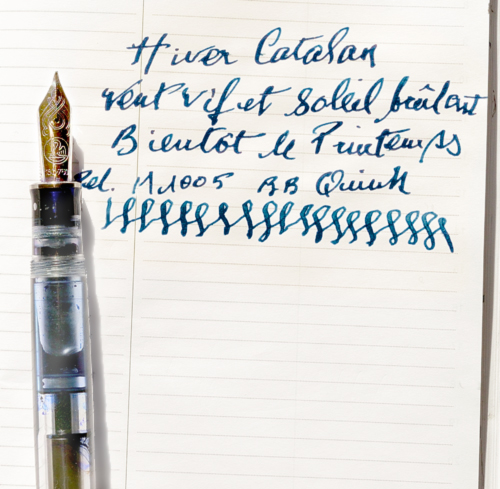 Hiver Catalan
vent vif et Soleil brûlant
Bientôt le Printemps
Pel. M1005 BB Quink